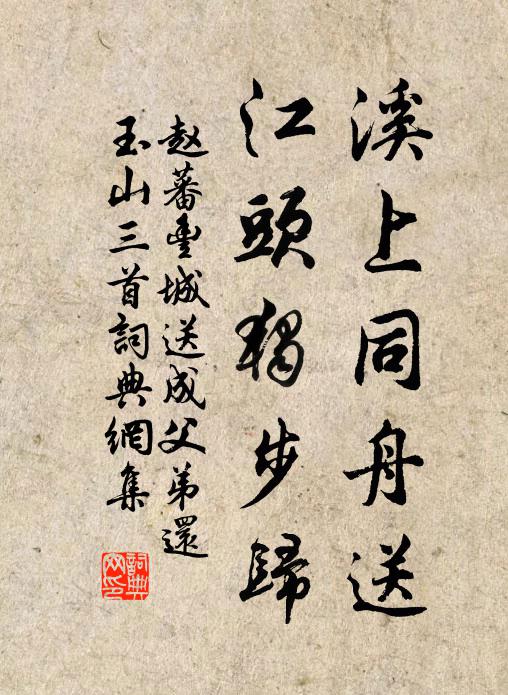 溪上同舟送
江頭獨步歸
赵蕃豊城送成父弟還
玉山三首詞典網集
詞典網印